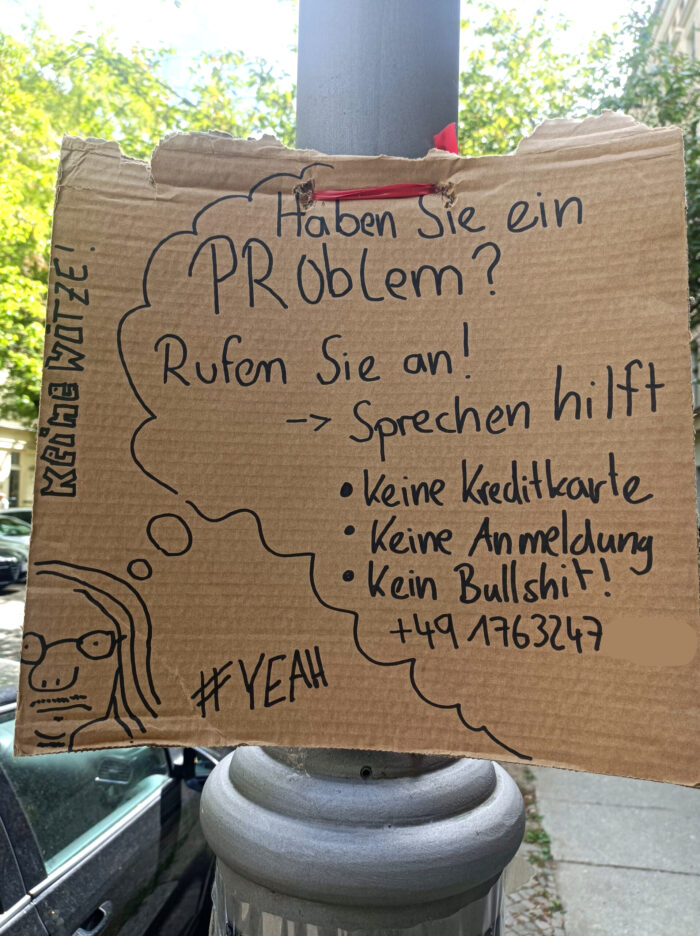 Haben Sie ein
PROblem?
Rufen Sie an!
-> Sprechen hilft
• Keine Kreditkarte
• Keine Anmeldung
• Kein Bullshit!
+49 1763247
#YEAH
KEINE WÖTZE!